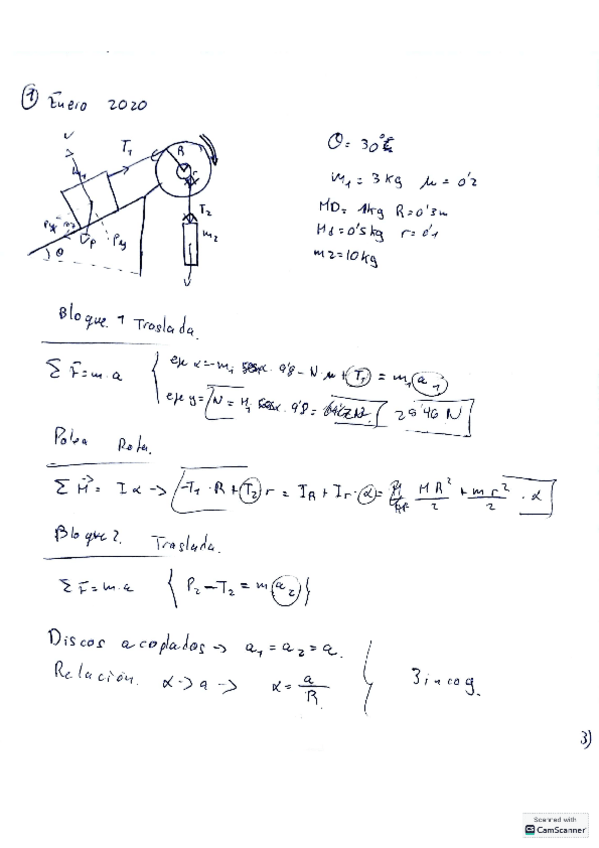 ① Enero 2020
θ = 30°
m₁ = 3 kg μ = 0'2
MD = 1kg R = 0'3m
Md = 0'5 kg r = 0'1
m2 = 10 kg
T₁
R
r
T₂
m₂
Px
P
Py
θ
Bloque 1 Traslada.
Σ F = m·a
eje x = -m₁ · 9'8 - N·μ + T₁ = m₁ a₁
eje y = N = M₁ · 9'8 = 25'46 N
Polea Rota.
Σ M = I α → -T₁ · R + T₂ r = I_R + I_r · α = MR²/2 + mr²/2 · α
Bloque 2. Traslada.
Σ F = m·a { P₂ - T₂ = m a₂ }
Discos acoplados → a₁ = a₂ = a.
Relación. α → a → α = a/R
3 incog.
3)
Scanned with
CamScanner